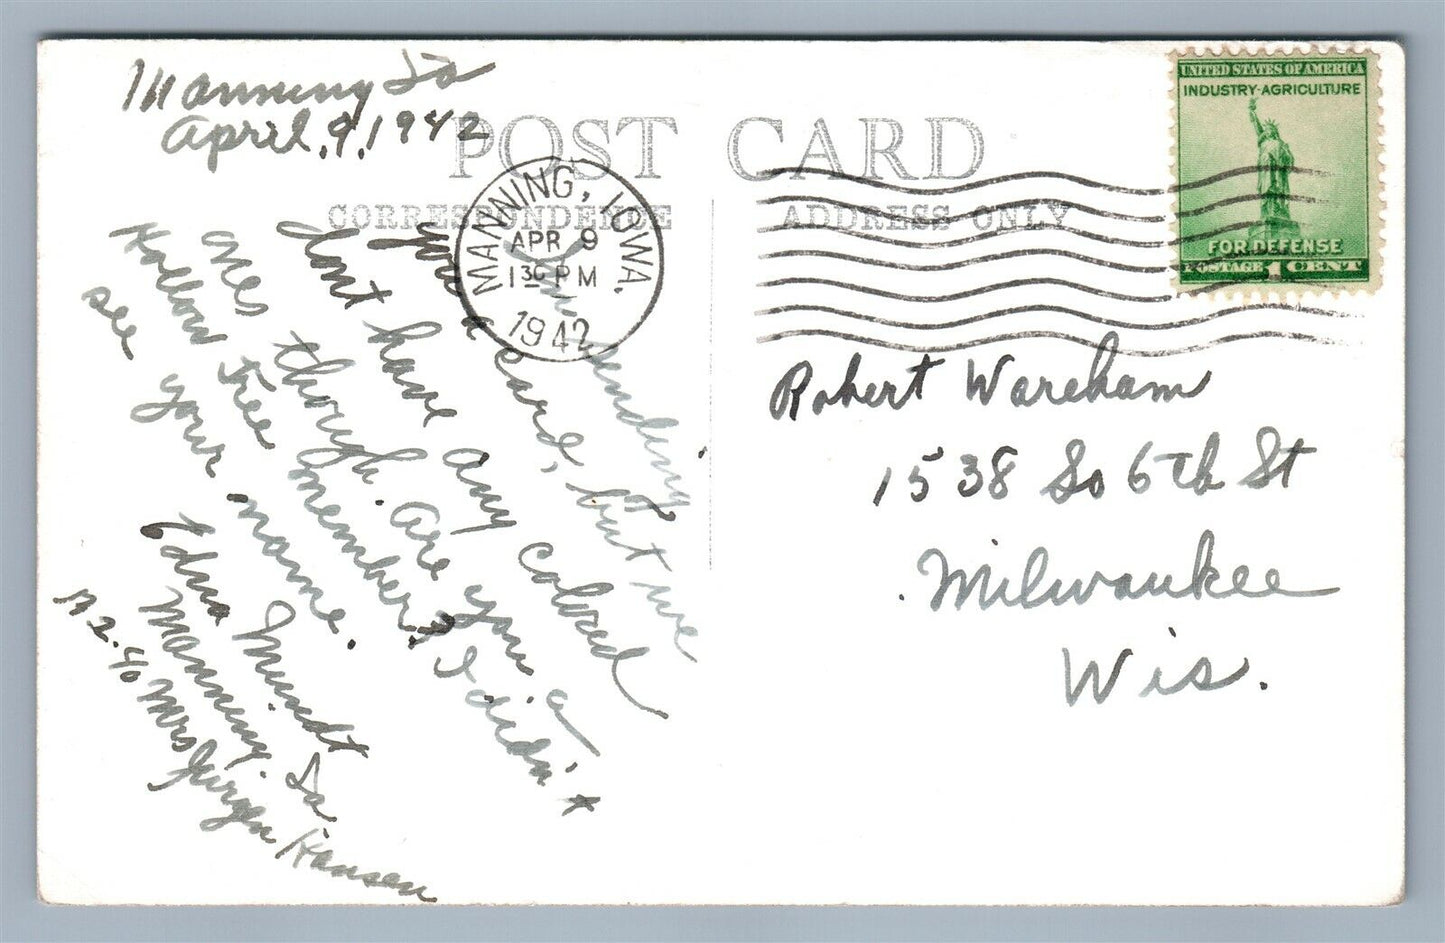 Manning Ia
April. 9. 1942
POST CARD
CORRESPONDENCE
ADDRESS ONLY
MANNING, IOWA.
APR 9
1 30 PM
1942
UNITED STATES OF AMERICA
INDUSTRY-AGRICULTURE
FOR DEFENSE
POSTAGE 1 CENT
sending
you a card, but we
dont have any colored
ones though. Are you a
Hollow Tree member? I didn't
see your name.
Edna Mundt
Manning. Ia
% Mrs Jurgen Hansen
Robert Wareham
1538 So 6th St
Milwaukee
Wis.